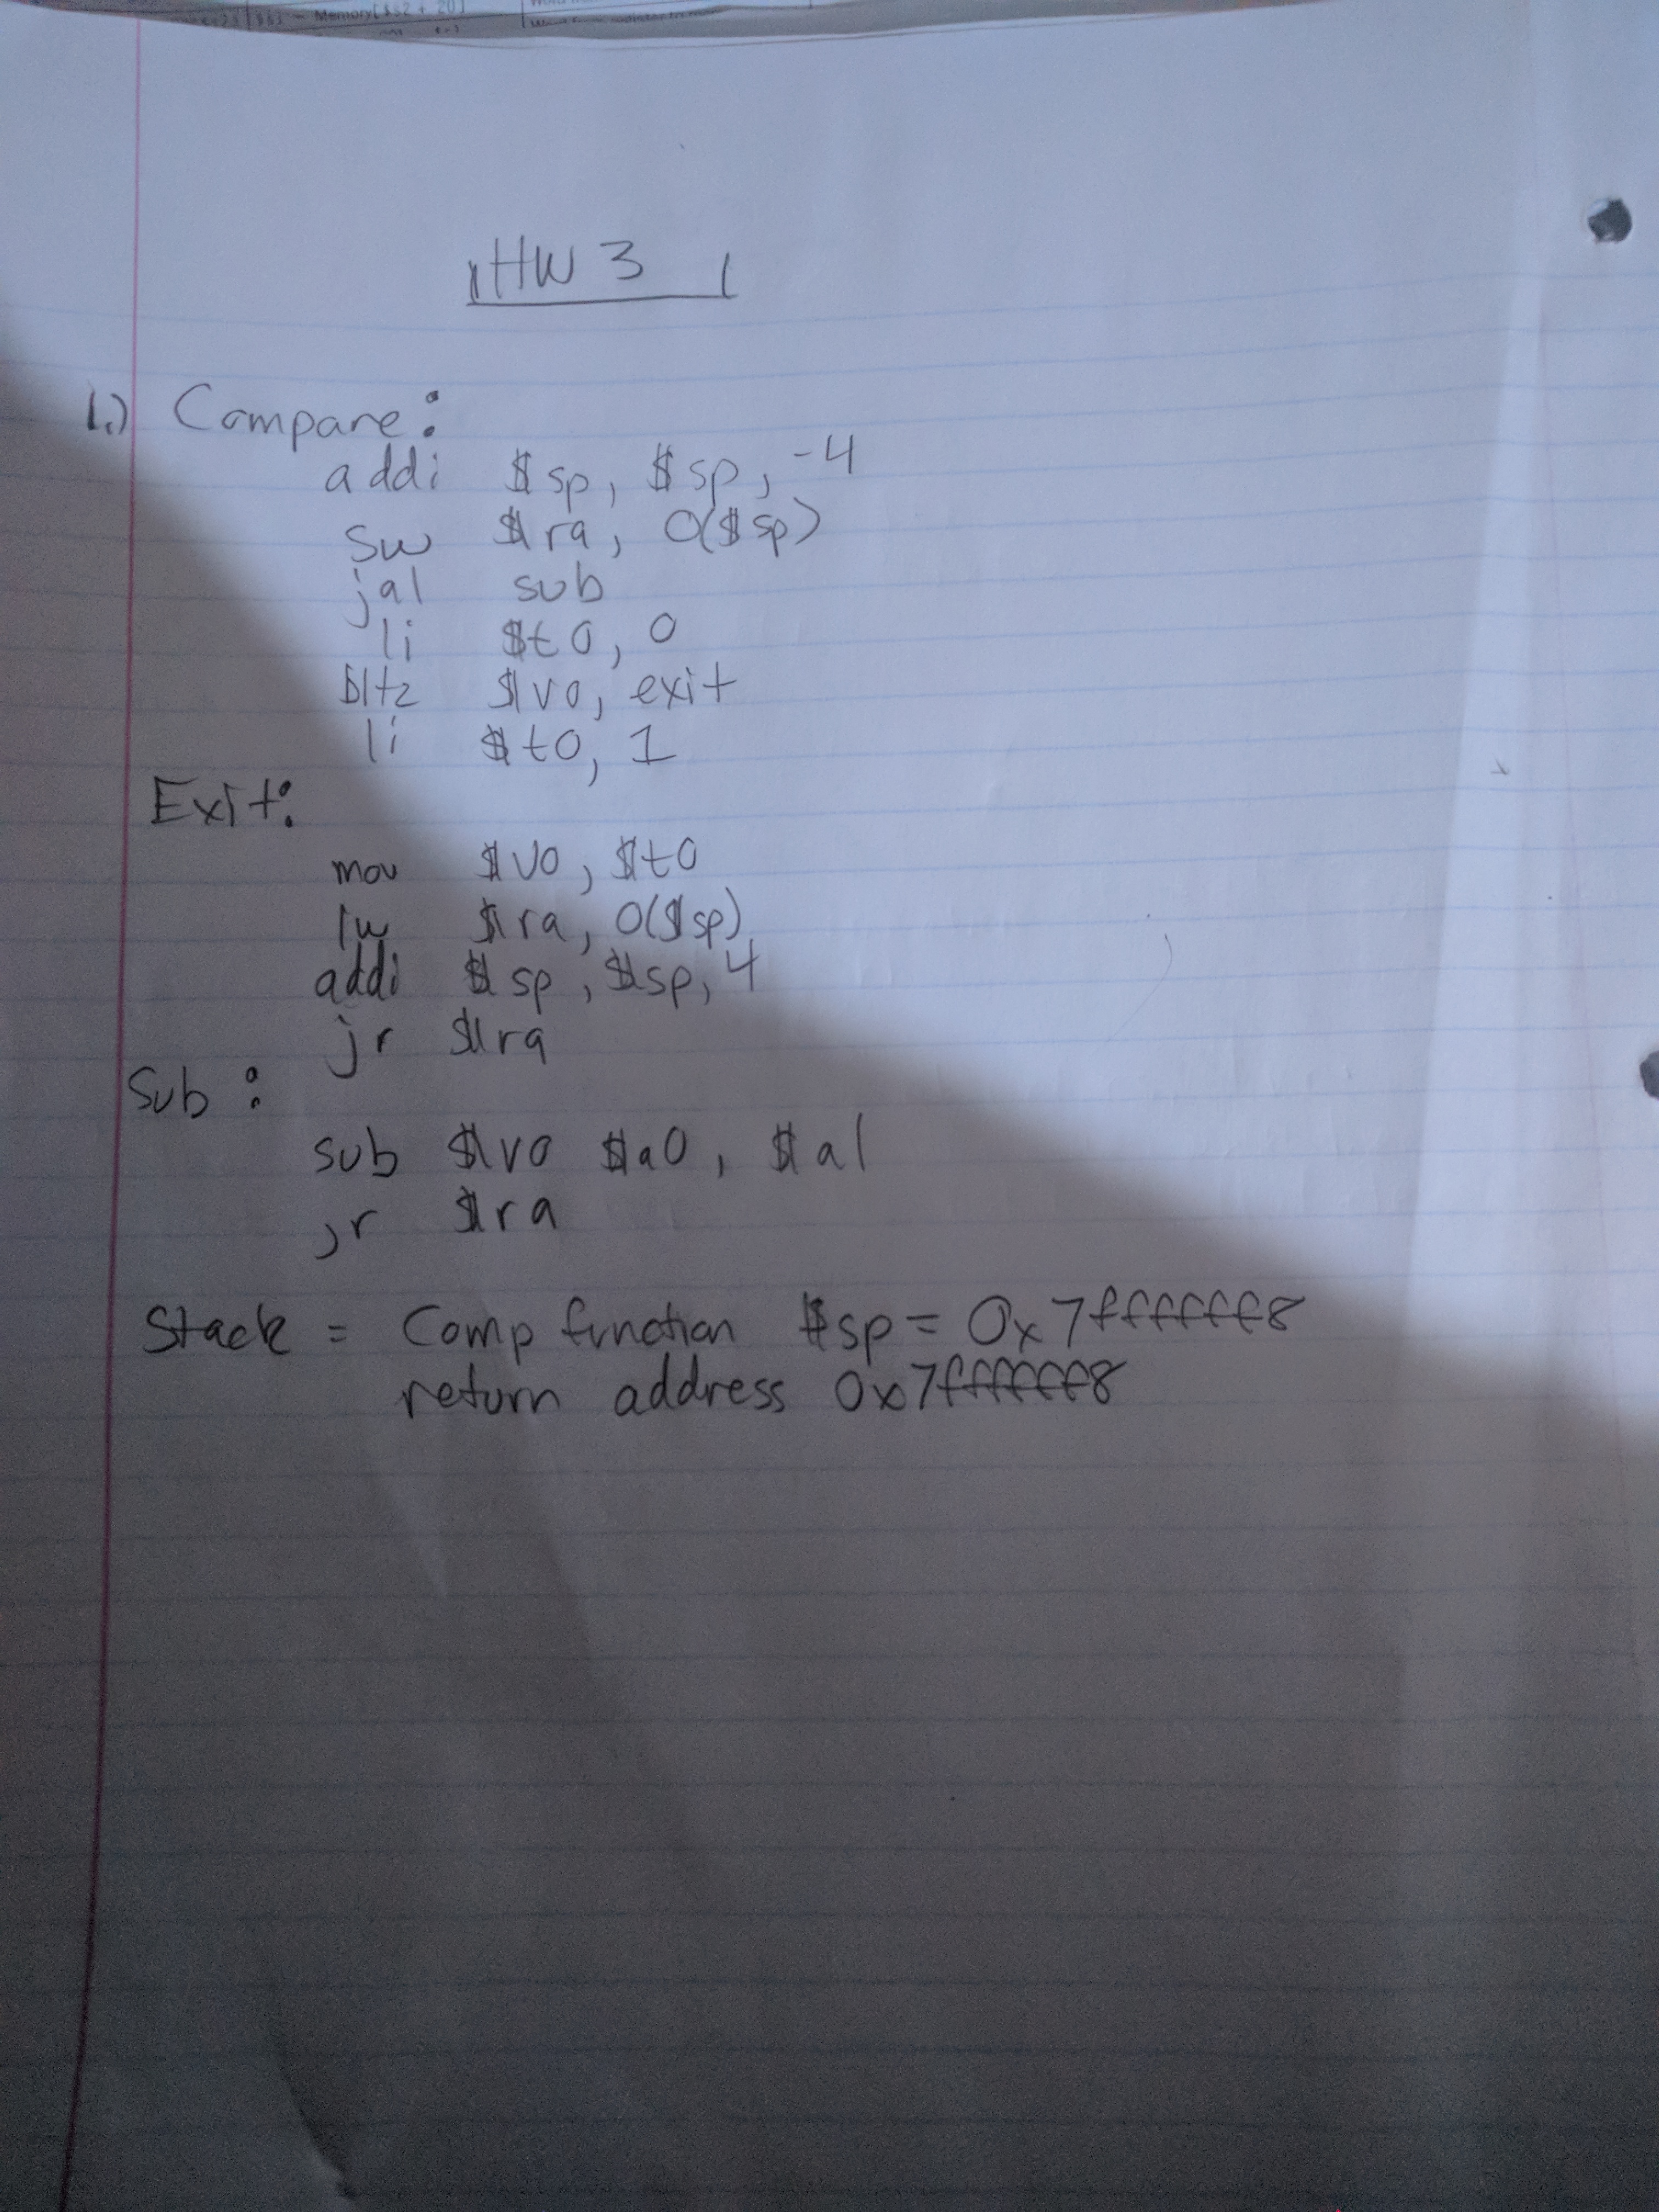 $s3 = Memory[$s2 + 20]
HW 3
1.) Compare:
addi $sp, $sp, -4
sw $ra, 0($sp)
jal sub
li $t0, 0
bltz $v0, exit
li $t0, 1
Exit:
mov $v0, $t0
lw $ra, 0($sp)
addi $sp, $sp, 4
jr $ra
Sub:
sub $v0 $a0, $a1
jr $ra
Stack = Comp function $sp = 0x7ffffff8
return address 0x7ffffff8